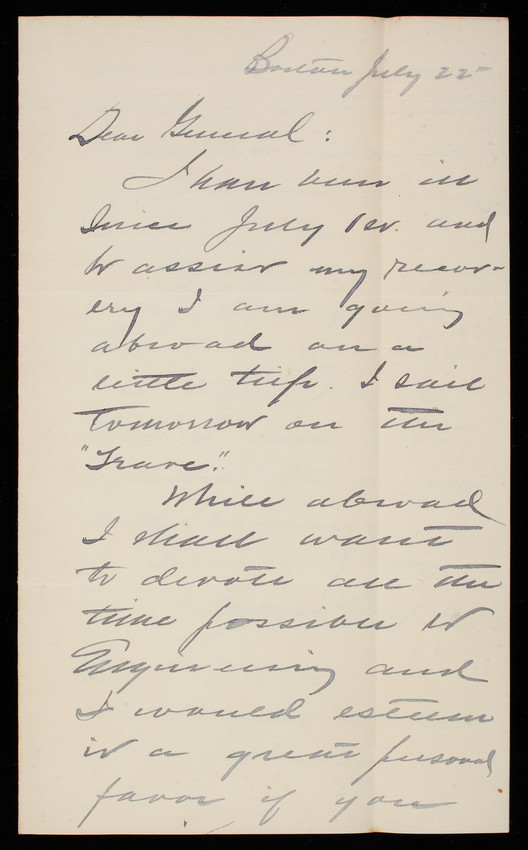 Boston July 22
Dear General:
I have been ill
since July 1st. and
to assist my recov-
ery I am going
abroad on a
little trip. I sail
tomorrow on the
"Trave."
While abroad
I shall want
to devote all the
time possible to
Engineering and
I would esteem
it a great personal
favor if you